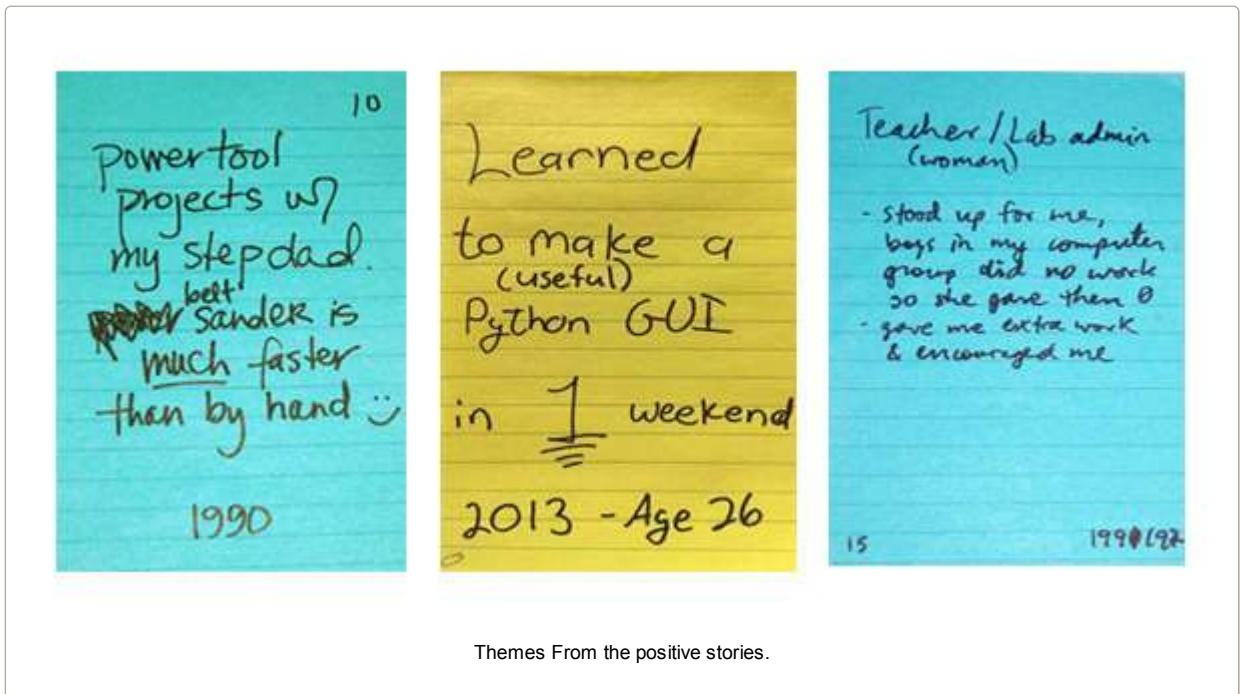 10
powertool
projects w/
my stepdad.
belt
sander is
much faster
than by hand :)
1990
Learned
to make a
(useful)
Python GUI
in 1 weekend
2013 - Age 26
Teacher / Lab admin
(woman)
- stood up for me,
boys in my computer
group did no work
so she gave them 0
- gave me extra work
& encouraged me
15
Themes From the positive stories.